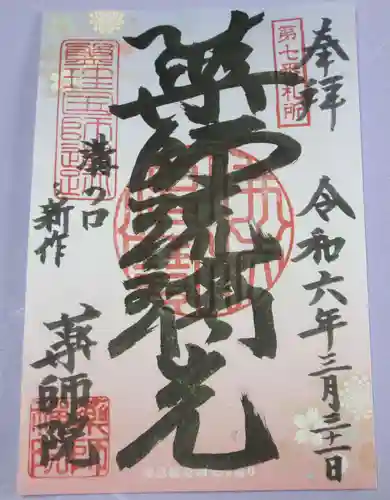 奉拝
第七番札所
令和六年三月三十一日
薬師琉璃光
溝の口
新作
薬師院